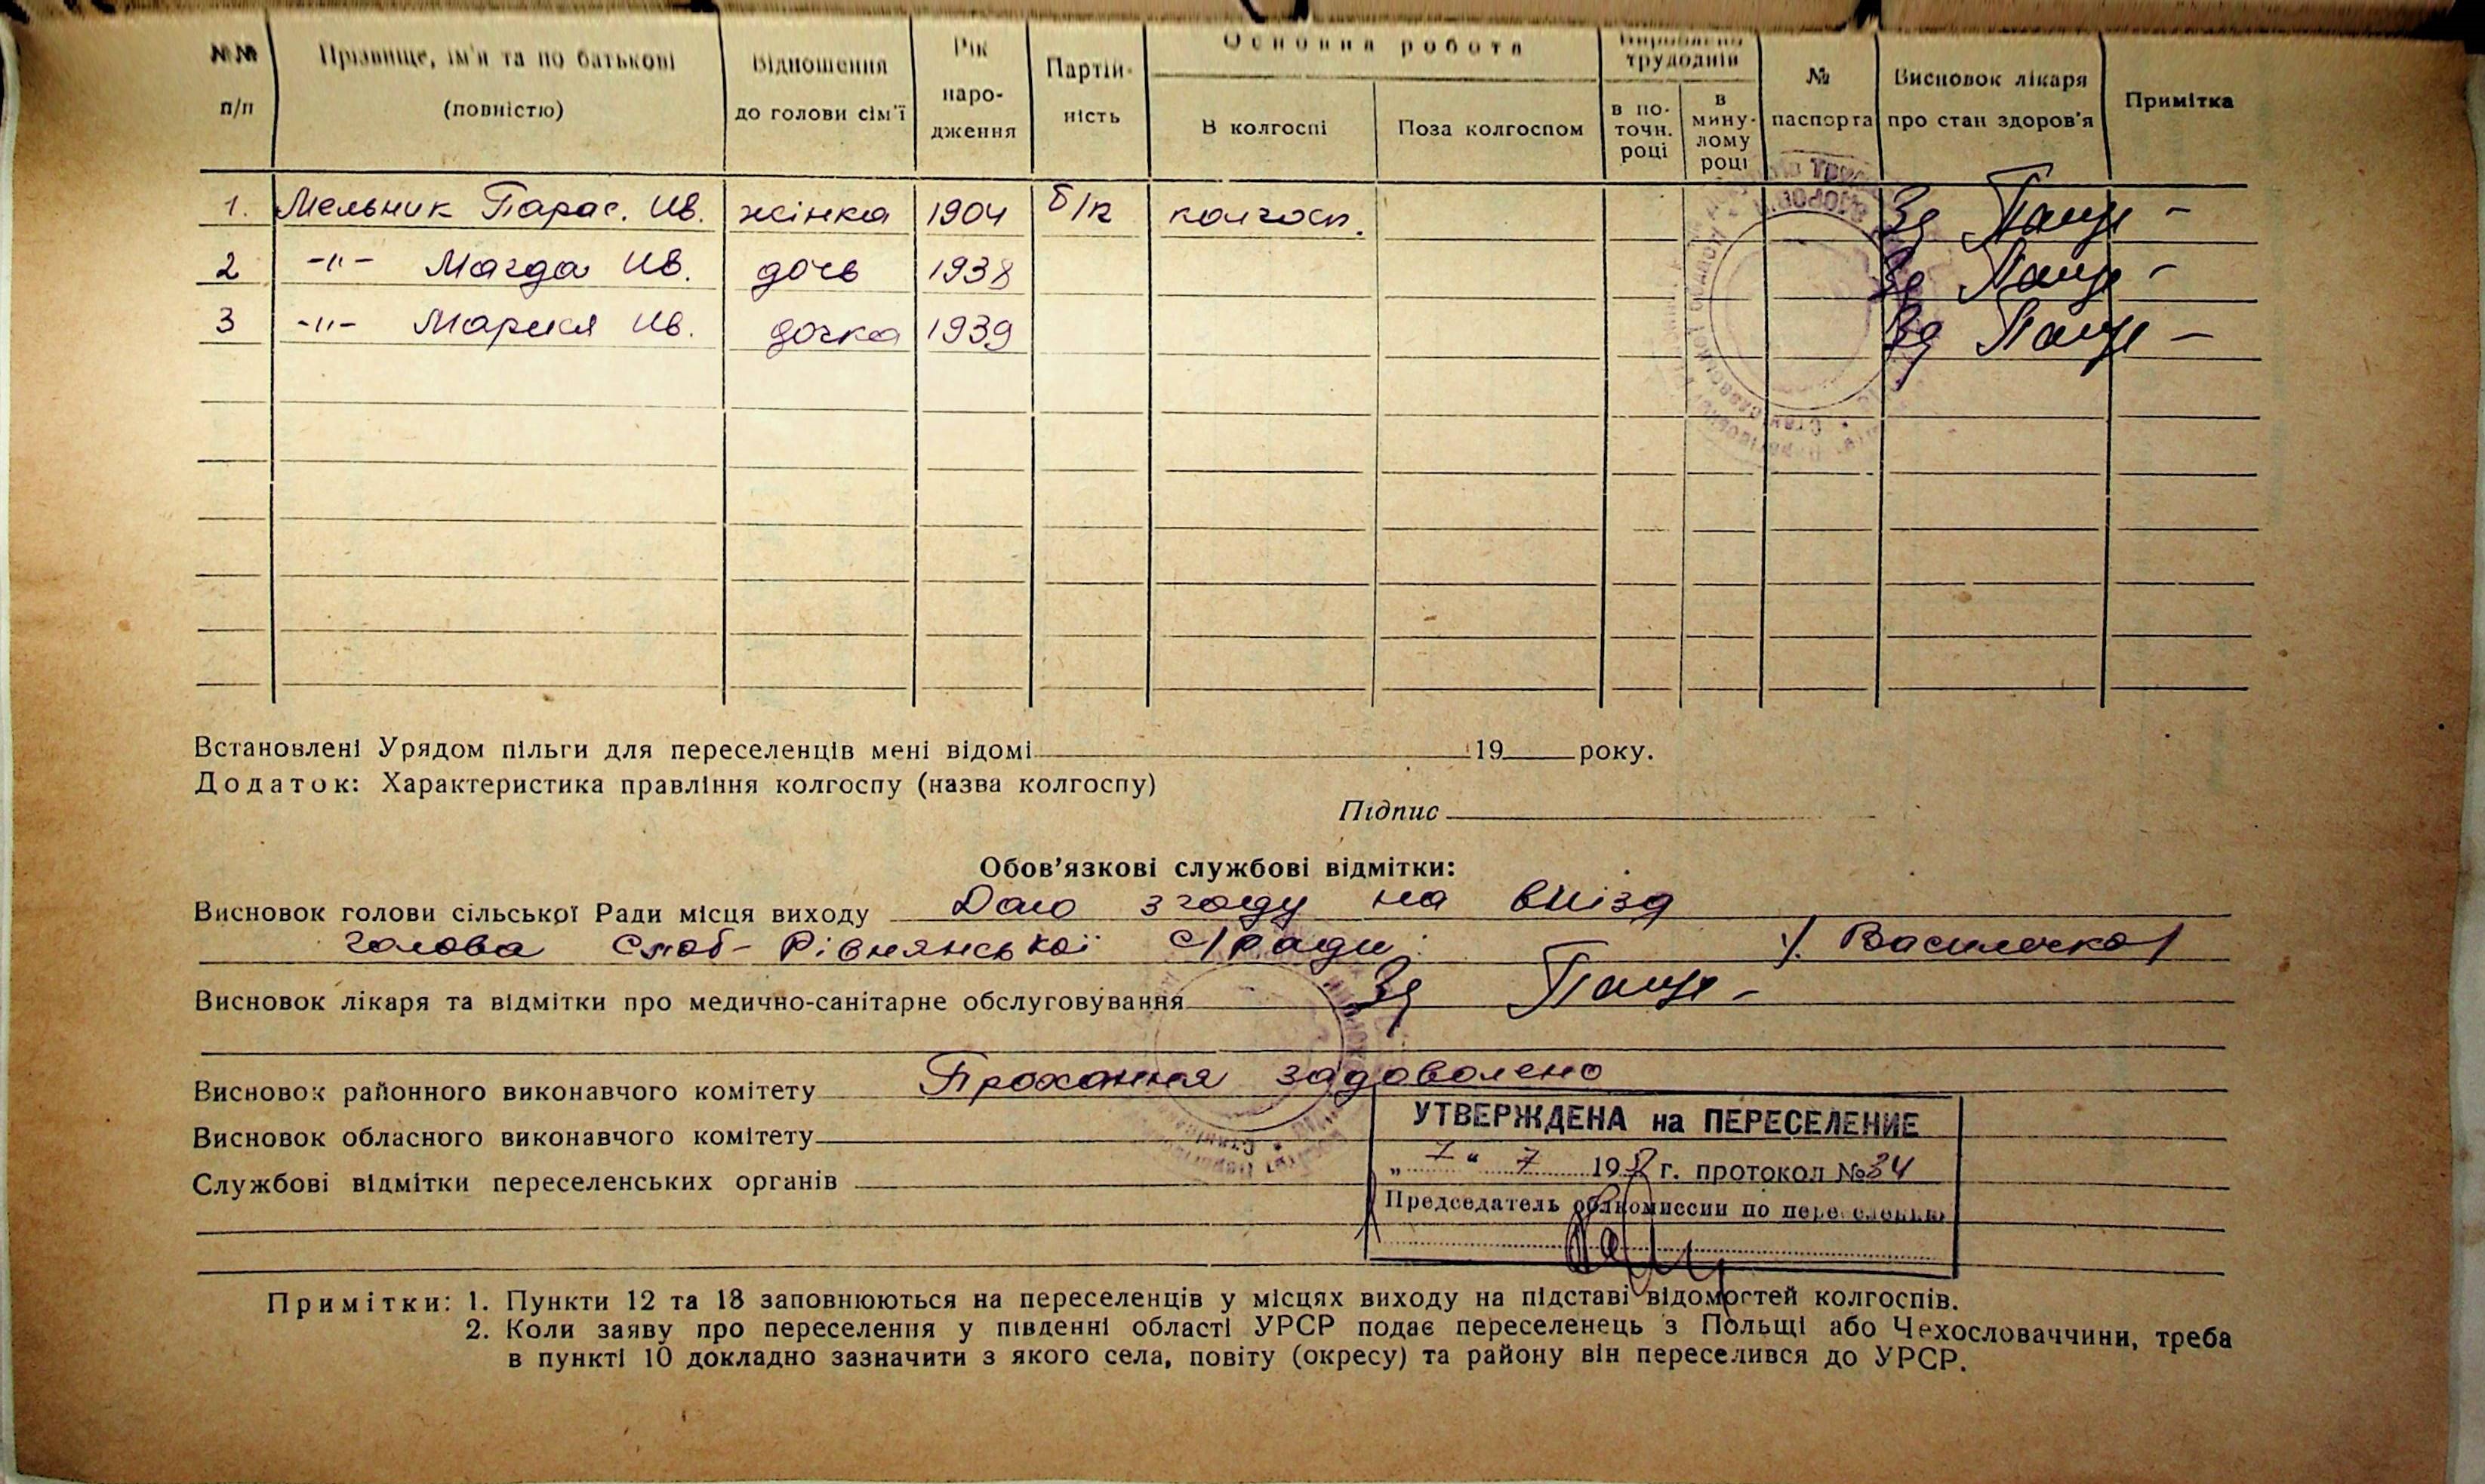 №№ п/п
Прізвище, ім'я та по батькові (повністю)
Відношення до голови сім'ї
Рік народження
Партійність
Основна робота
В колгоспі
Поза колгоспом
Вироблено трудоднів
в поточн. році
в минулому році
№ паспорта
Висновок лікаря про стан здоров'я
Примітка
1. Мельник Парас. Ив. жінка 1904 б/п колгосп. Зд
2 -"- Магда Ив. дочь 1938 Зд
3 -"- Мария Ив. дочка 1939 Зд
Встановлені Урядом пільги для переселенців мені відомі 19 року.
Додаток: Характеристика правління колгоспу (назва колгоспу)
Підпис
Обов'язкові службові відмітки:
Висновок голови сільської Ради місця виходу Даю згоду на виїзд
голова Слоб-Рівнянської с/ради: /Василечко/
Висновок лікаря та відмітки про медично-санітарне обслуговування Зд
Висновок районного виконавчого комітету Прохання задоволено
Висновок обласного виконавчого комітету
Службові відмітки переселенських органів
УТВЕРЖДЕНА на ПЕРЕСЕЛЕНИЕ
„ 7 “ 7 195 г. протокол №34
Председатель облкомиссии по переселению
Примітки: 1. Пункти 12 та 18 заповнюються на переселенців у місцях виходу на підставі відомостей колгоспів.
2. Коли заяву про переселення у південні області УРСР подає переселенець з Польщі або Чехословаччини, треба
в пункті 10 докладно зазначити з якого села, повіту (окресу) та району він переселився до УРСР.